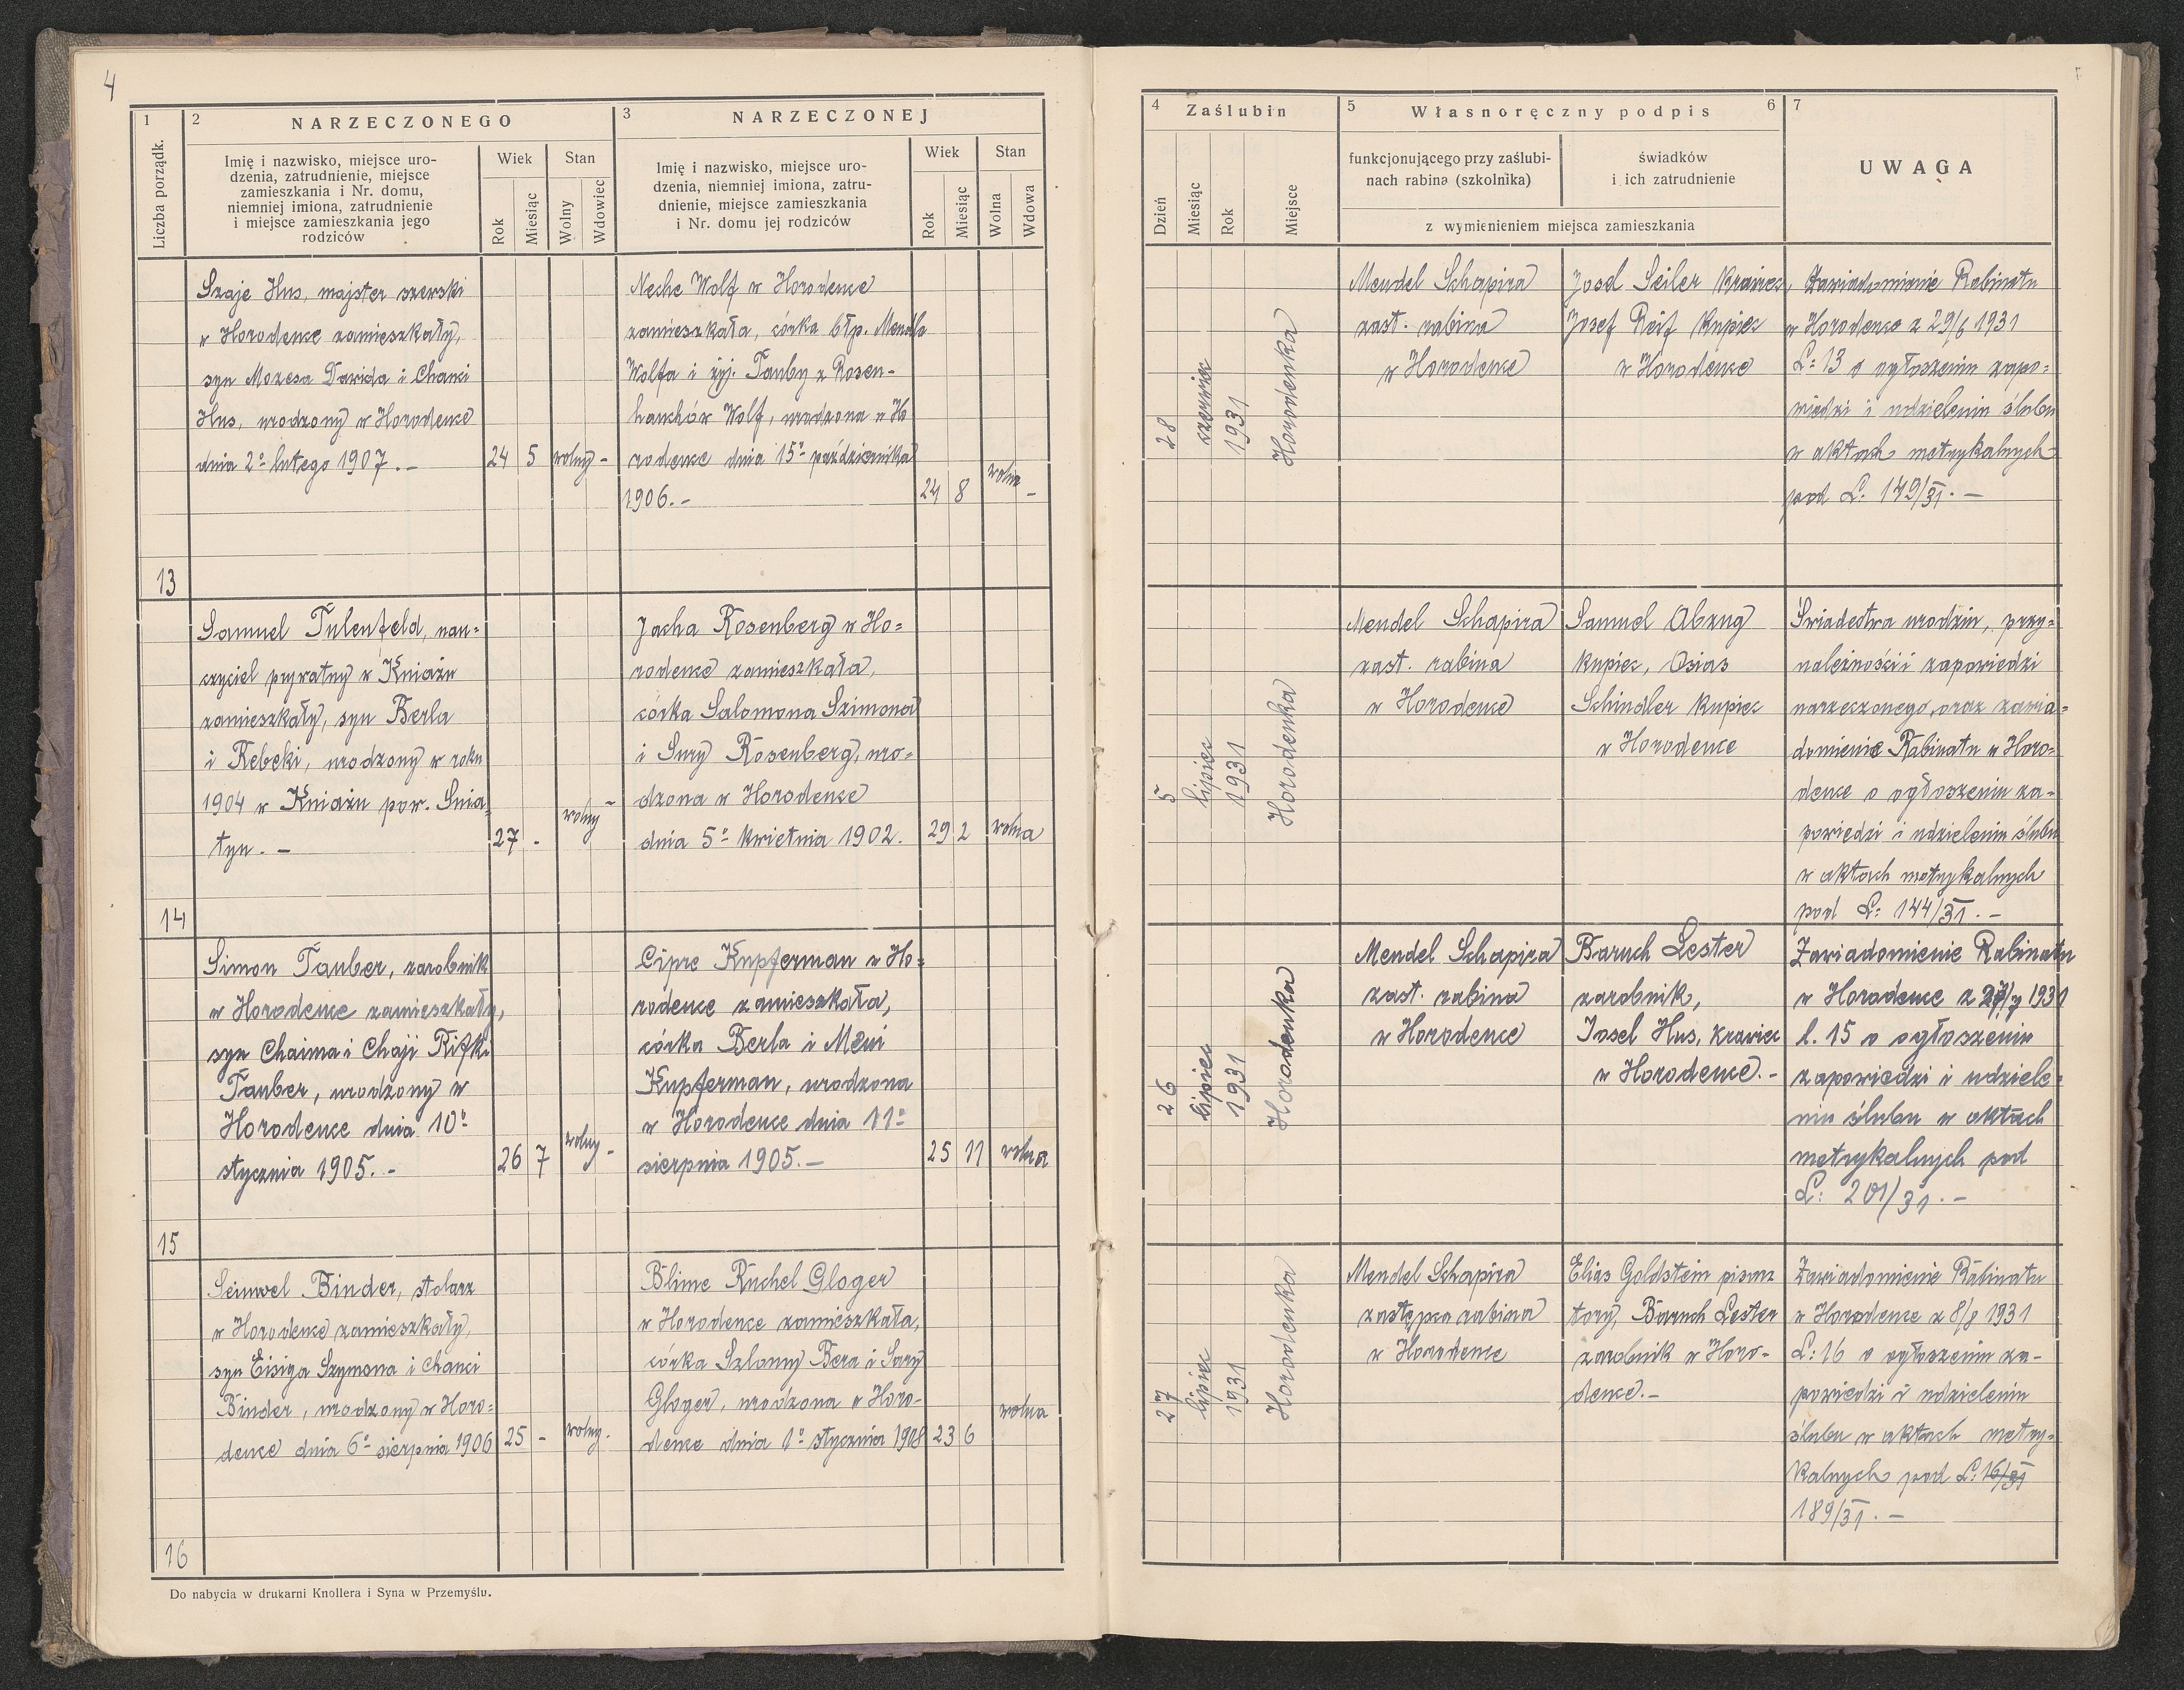 4
1
2
NARZECZONEGO
3
NARZECZONEJ
Liczba porządk.
Imię i nazwisko, miejsce uro-
dzenia, zatrudnienie, miejsce
zamieszkania i Nr. domu,
niemniej imiona, zatrudnienie
i miejsce zamieszkania jego
rodziców
Wiek
Stan
Rok
Miesiąc
Wolny
Wdowiec
Imię i nazwisko, miejsce uro-
dzenia, niemniej imiona, zatru-
dnienie, miejsce zamieszkania
i Nr. domu jej rodziców
Wiek
Stan
Rok
Miesiąc
Wolna
Wdowa
4
Zaślubin
5
Własnoręczny podpis
6
7
Dzień
Miesiąc
Rok
Miejsce
funkcjonującego przy zaślubi-
nach rabina (szkolnika)
świadków
i ich zatrudnienie
z wymienieniem miejsca zamieszkania
UWAGA
13
Szaje Hus, majster szewski
w Horodence zamieszkały,
syn Mozesa Dawida i Chanci
Hus, urodzony w Horodence
dnia 2º lutego 1907.-
24
5
wolny -
Neche Wolf w Horodence
zamieszkała, córka błp. Mendla
Wolfa i żyj. Tauby z Rosen-
hauchów Wolf, urodzona w Ho
rodence dnia 15º października
1906.-
24
8
wolna -
28
czerwiec
1931
Horodenka
Mendel Schapira
zast. rabina
w Horodence
Josel Seiler krawiec,
Josef Reif kupiec
w Horodence
Zawiadomienie Rabinatu
w Horodence z 29/6 1931
L: 13 o ogłoszeniu zapo=
wiedzi i udzieleniu ślubu
w aktach metrykalnych
pod L: 179/31. -
14
Samuel Tulenfeld, nau=
czyciel prywatny w Kniażu
zamieszkały, syn Berla
i Rebeki, urodzony w roku
1904 w Kniażu pow. Śnia=
tyn. -
27
-
wolny -
Jacha Rosenberg w Ho=
rodence zamieszkała,
córka Salomona Szimona
i Sury Rosenberg, uro=
dzona w Horodence
dnia 5º kwietnia 1902.
29
2
wolna
5
lipiec
1931
Horodenka
Mendel Schapira
zast. rabina
w Horodence
Samuel Abzug
kupiec, Osias
Schindler kupiec
w Horodence
Świadectwa urodzin, przy=
należności i zapowiedzi
narzeczonego, oraz zawia=
domienie Rabinatu w Horo=
dence o ogłoszeniu za-
powiedzi i udzieleniu ślubu
w aktach metrykalnych
pod L: 144/31. -
15
Simon Tauber, zarobnik
w Horodence zamieszkały,
syn Chaima i Chaji Rifki
Tauber, urodzony w
Horodence dnia 10º
stycznia 1905. -
26
7
wolny -
Cipre Kupferman w Ho=
rodence zamieszkała,
córka Berla i Meni
Kupferman, urodzona
w Horodence dnia 11º
sierpnia 1905. -
25
11
wolna
26
lipiec
1931
Horodenka
Mendel Schapira
zast. rabina
w Horodence
Baruch Lester
zarobnik,
Josel Hus, krawiec
w Horodence. -
Zawiadomienie Rabinatu
w Horodence z 1931
l. 15 o ogłoszeniu
zapowiedzi i udziele=
niu ślubu w aktach
metrykalnych pod
L: 201/31. -
16
Seinwel Binder, stolarz
w Horodence zamieszkały,
syn Eisiga Szymona i Chanci
Binder, urodzony w Horo=
dence dnia 6º sierpnia 1906
25
-
wolny.
Blime Ruchel Gloger
w Horodence zamieszkała,
córka Szlomy Bera i Sary
Gloger, urodzona w Horo-
dence dnia 1º stycznia 1908
23
6
wolna
27
lipiec
1931
Horodenka
Mendel Schapira
zastępca rabina
w Horodence
Elias Goldstein pisarz
tory, Baruch Lester
zarobnik w Horo-
dence. -
Zawiadomienie Rabinatu
w Horodence z 8/8 1931
L: 16 o ogłoszeniu za-
powiedzi i udzieleniu
ślubu w aktach metry=
kalnych pod L: 16/31
189/31. -
Do nabycia w drukarni Knollera i Syna w Przemyślu.